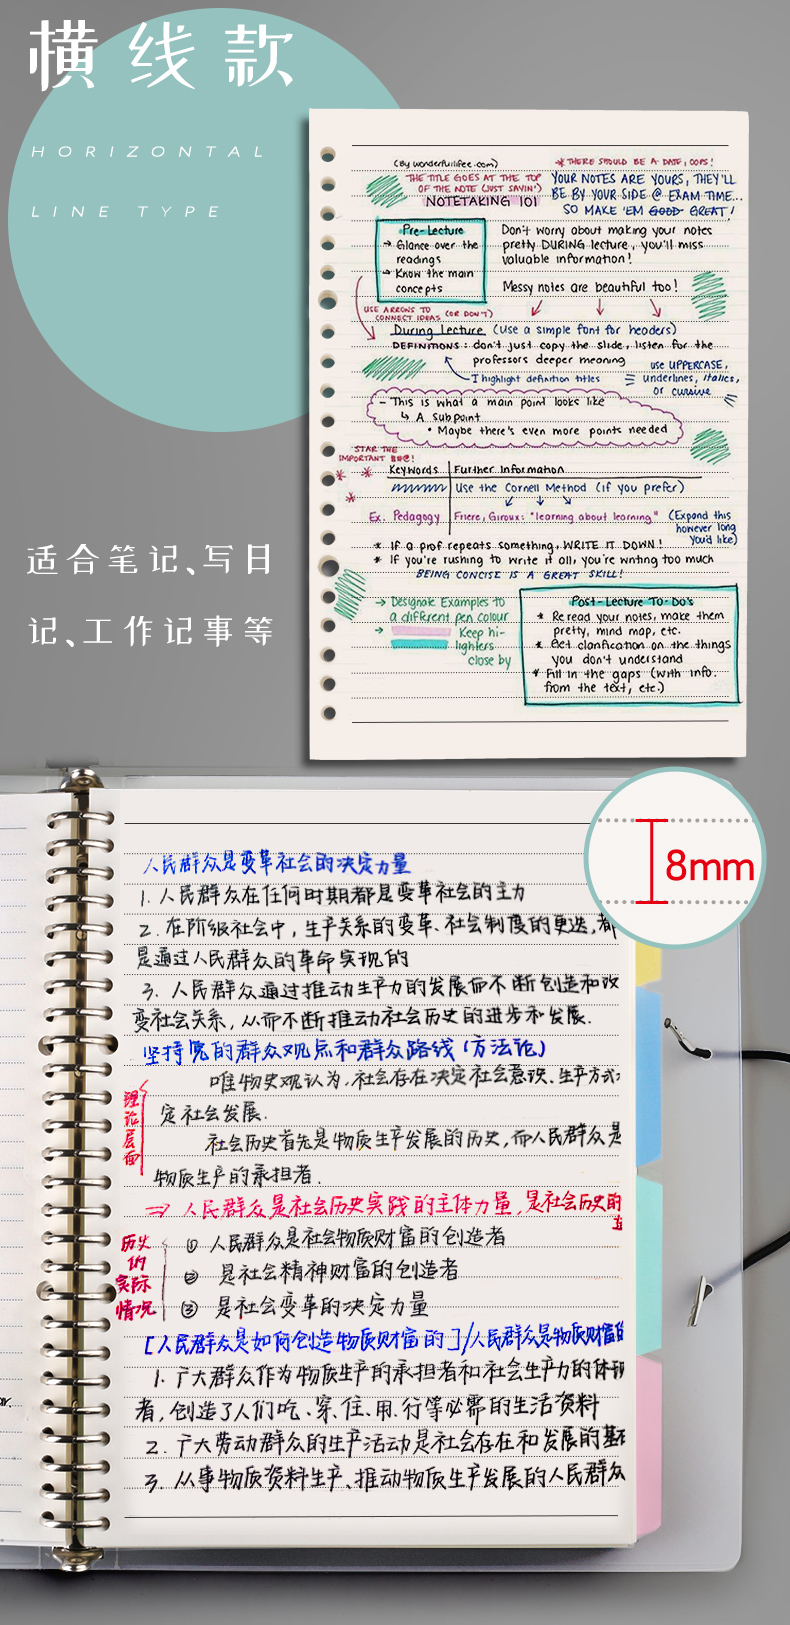 横线款
HORIZONTAL
LINE TYPE
适合笔记、写日
记、工作记事等
(By wonderfullifee.com)
* THERE SHOULD BE A DATE, OOPS!
THE TITLE GOES AT THE TOP
OF THE NOTE (JUST SAYIN')
NOTETAKING 101
YOUR NOTES ARE YOURS, THEY'LL
BE BY YOUR SIDE @ EXAM TIME...
SO MAKE 'EM GOOD GREAT!
Pre-Lecture
→ Glance over the
readings
→ Know the main
concepts
Don't worry about making your notes
pretty DURING lecture, you'll miss
valuable information!
Messy notes are beautiful too!
USE ARROWS TO
CONNECT IDEAS (OR DON'T)
During Lecture (Use a simple font for headers)
DEFINITIONS: don't just copy the slide, listen for the
professors deeper meaning
I highlight definition titles
use UPPERCASE,
underlines, italics,
or cursive
- This is what a main point looks like
↳ A subpoint
• Maybe there's even more points needed
STAR THE
IMPORTANT
Keywords
Further Information
Use the Cornell Method (if you prefer)
Ex. Pedagogy
Friere, Giroux: "learning about learning"
(Expand this
however long
you'd like)
* If a prof repeats something, WRITE IT DOWN!
* If you're rushing to write it all, you're writing too much
BEING CONCISE IS A GREAT SKILL!
→ Designate Examples to
a different pen colour
→ Keep hi-
lighters
close by
Post-Lecture To-Do's
* Reread your notes, make them
pretty, mind map, etc.
* Get clarification on the things
you don't understand
* Fill in the gaps (with info.
from the text, etc.)
8mm
人民群众是变革社会的决定力量
1. 人民群众在任何时期都是变革社会的主力
2. 在阶级社会中，生产关系的变革、社会制度的更迭，都
是通过人民群众的革命实现的
3. 人民群众通过推动生产力的发展而不断创造和改
变社会关系，从而不断推动社会历史的进步和发展.
坚持党的群众观点和群众路线（方法论）
理论层面
唯物史观认为，社会存在决定社会意识、生产方式
定社会发展.
社会历史首先是物质生产发展的历史，而人民群众是
物质生产的承担者.
⇒ 人民群众是社会历史实践的主体力量，是社会历史的
历史的实际情况
① 人民群众是社会物质财富的创造者
② 是社会精神财富的创造者
③ 是社会变革的决定力量
[人民群众是如何创造物质财富的]/人民群众是物质财富的
1. 广大群众作为物质生产的承担者和社会生产力的体现
者，创造了人们吃、穿、住、用、行等必需的生活资料
2. 广大劳动群众的生产活动是社会存在和发展的基
3. 从事物质资料生产、推动物质生产发展的人民群众